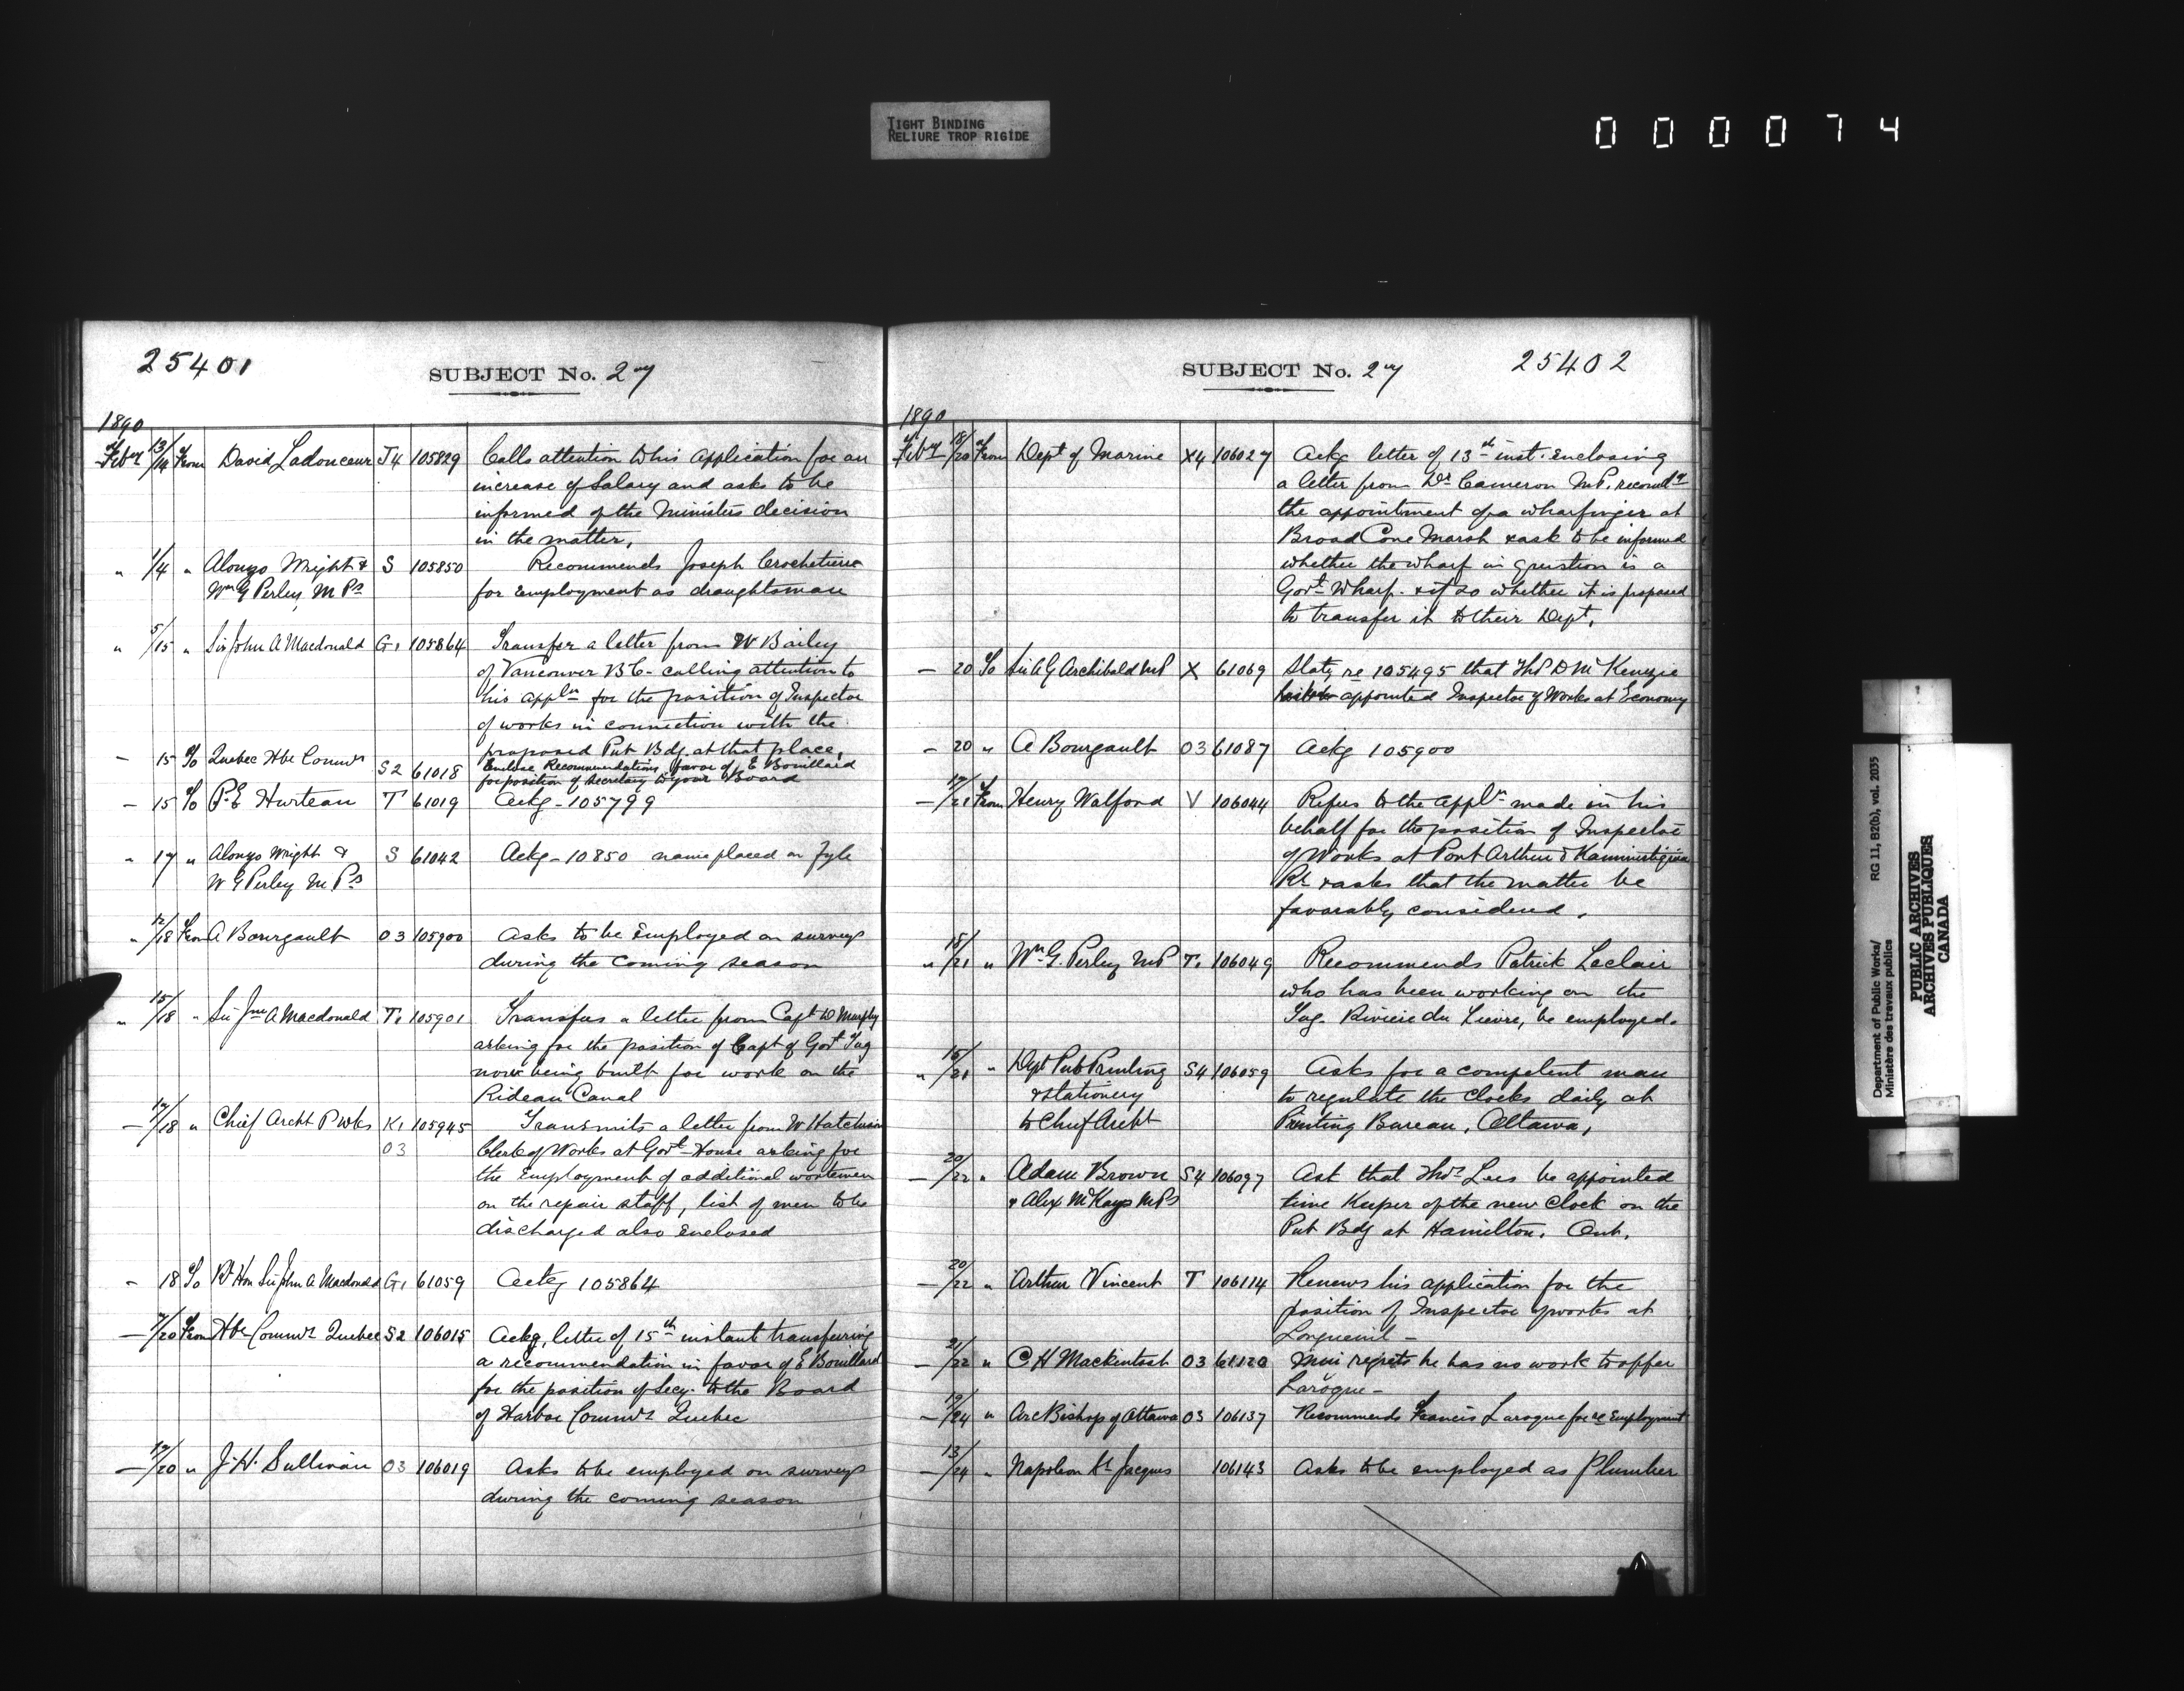 TIGHT BINDING
RELIURE TROP RIGIDE
000074
25401
SUBJECT No. 27
1890
Feby 13/14 From David Ladouceur J4 105829 Calls attention to his application for an
increase of Salary and asks to be
informed of the Ministers decision
in the matter.
" 1/4 " Alonzo Wright & S 105850 Recommends Joseph Crochetiere
Wm G Perley, M Ps for employment as draughtsman
" 5/15 " Sir John A Macdonald G1 105864 Transfer a letter from W Bailey
of Vancouver B.C. calling attention to
his appln for the position of Inspector
of works in connection with the
proposed Pub Bdg. at that place.
— 15 To Quebec Hbr Commrs S2 61018 Enclose Recommendations favor of E Bouillard
for position of Secretary to your Board
— 15 To P.E Hurteau T 61019 Ackg - 105799
" 17 " Alonzo Wright & S 61042 Ackg - 10850 name placed on fyle
W G Perley M Ps
" 12/18 From A Bourgault O3 105900 Asks to be Employed on surveys
during the coming season
" 15/18 " Sir Jno A Macdonald T1 105901 Transfers a letter from Capt D Murphy
asking for the position of Capt of Govt Tug
now being built for work on the
Rideau Canal
— 17/18 " Chief Archt P Wks K1 105945 Transmits a letter from W Hutchison
O3 Clerk of Works at Govt House asking for
the Employment of additional workmen
on the repair staff, list of men to be
discharged also enclosed
- 18 To Rt Hon Sir John A Macdonald G1 61059 Ackg 105864
— /20 From Hbr Commrs Quebec S2 106015 Ackg, letter of 15th instant transferring
a recommendation in favor of E Bouillard
for the position of Secy. to the Board
of Harbor Commrs Quebec
— 19/20 " J.H. Sullivan O3 106019 Asks to be employed on surveys
during the coming season
SUBJECT No. 27
25402
1890
Feby 18/20 From Dept of Marine X4 106027 Ackg letter of 13th inst. enclosing
a letter from Dr Cameron M.P. recomdg
the appointment of a wharfinger at
Broad Cove Marsh & ask to be informed
whether the wharf in question is a
Govt Wharf. & if so whether it is proposed
to transfer it to their Dept.
— 20 To Sir A G Archibald MP X 61069 Statg re 105495 that Thos D McKenzie
appointed Inspector of Works at Economy
— 20 " A Bourgault O3 61087 Ackg 105900
— 17/21 From Henry Walford V 106044 Refers to the appln made in his
behalf for the position of Inspector
of Works at Port Arthur & Kaministiquia
Rr & asks that the matter be
favorably considered.
" 18/21 " Wm G. Perley MP T1 106049 Recommends Patrick Leclair
who has been working on the
Tug. Riviere du Lievre, be employed.
" 16/21 " Dept Pub Printing S4 106059 Asks for a competent man
& Stationery to regulate the clocks daily at
to Chief Archt Printing Bureau, Ottawa,
— 20/22 " Adam Brown S4 106097 Ask that Thos Lees be appointed
& Alex McKays MPs time Keeper of the new Clock on the
Pub Bdg at Hamilton. Ont.
— 20/22 " Arthur Vincent T 106114 Renews his application for the
position of Inspector of works at
Longueuil -
— 21/22 " C H Mackintosh O3 61120 Min regrets he has no work to offer
Larogue -
— 19/24 " ArcBishop of Ottawa O3 106137 Recommends Francis Larogue for re Employment
— 13/24 " Napoleon St Jacques 106143 Asks to be employed as Plumber
Department of Public Works/
Ministère des travaux publics
RG 11, B2(b), vol. 2035
PUBLIC ARCHIVES
ARCHIVES PUBLIQUES
CANADA